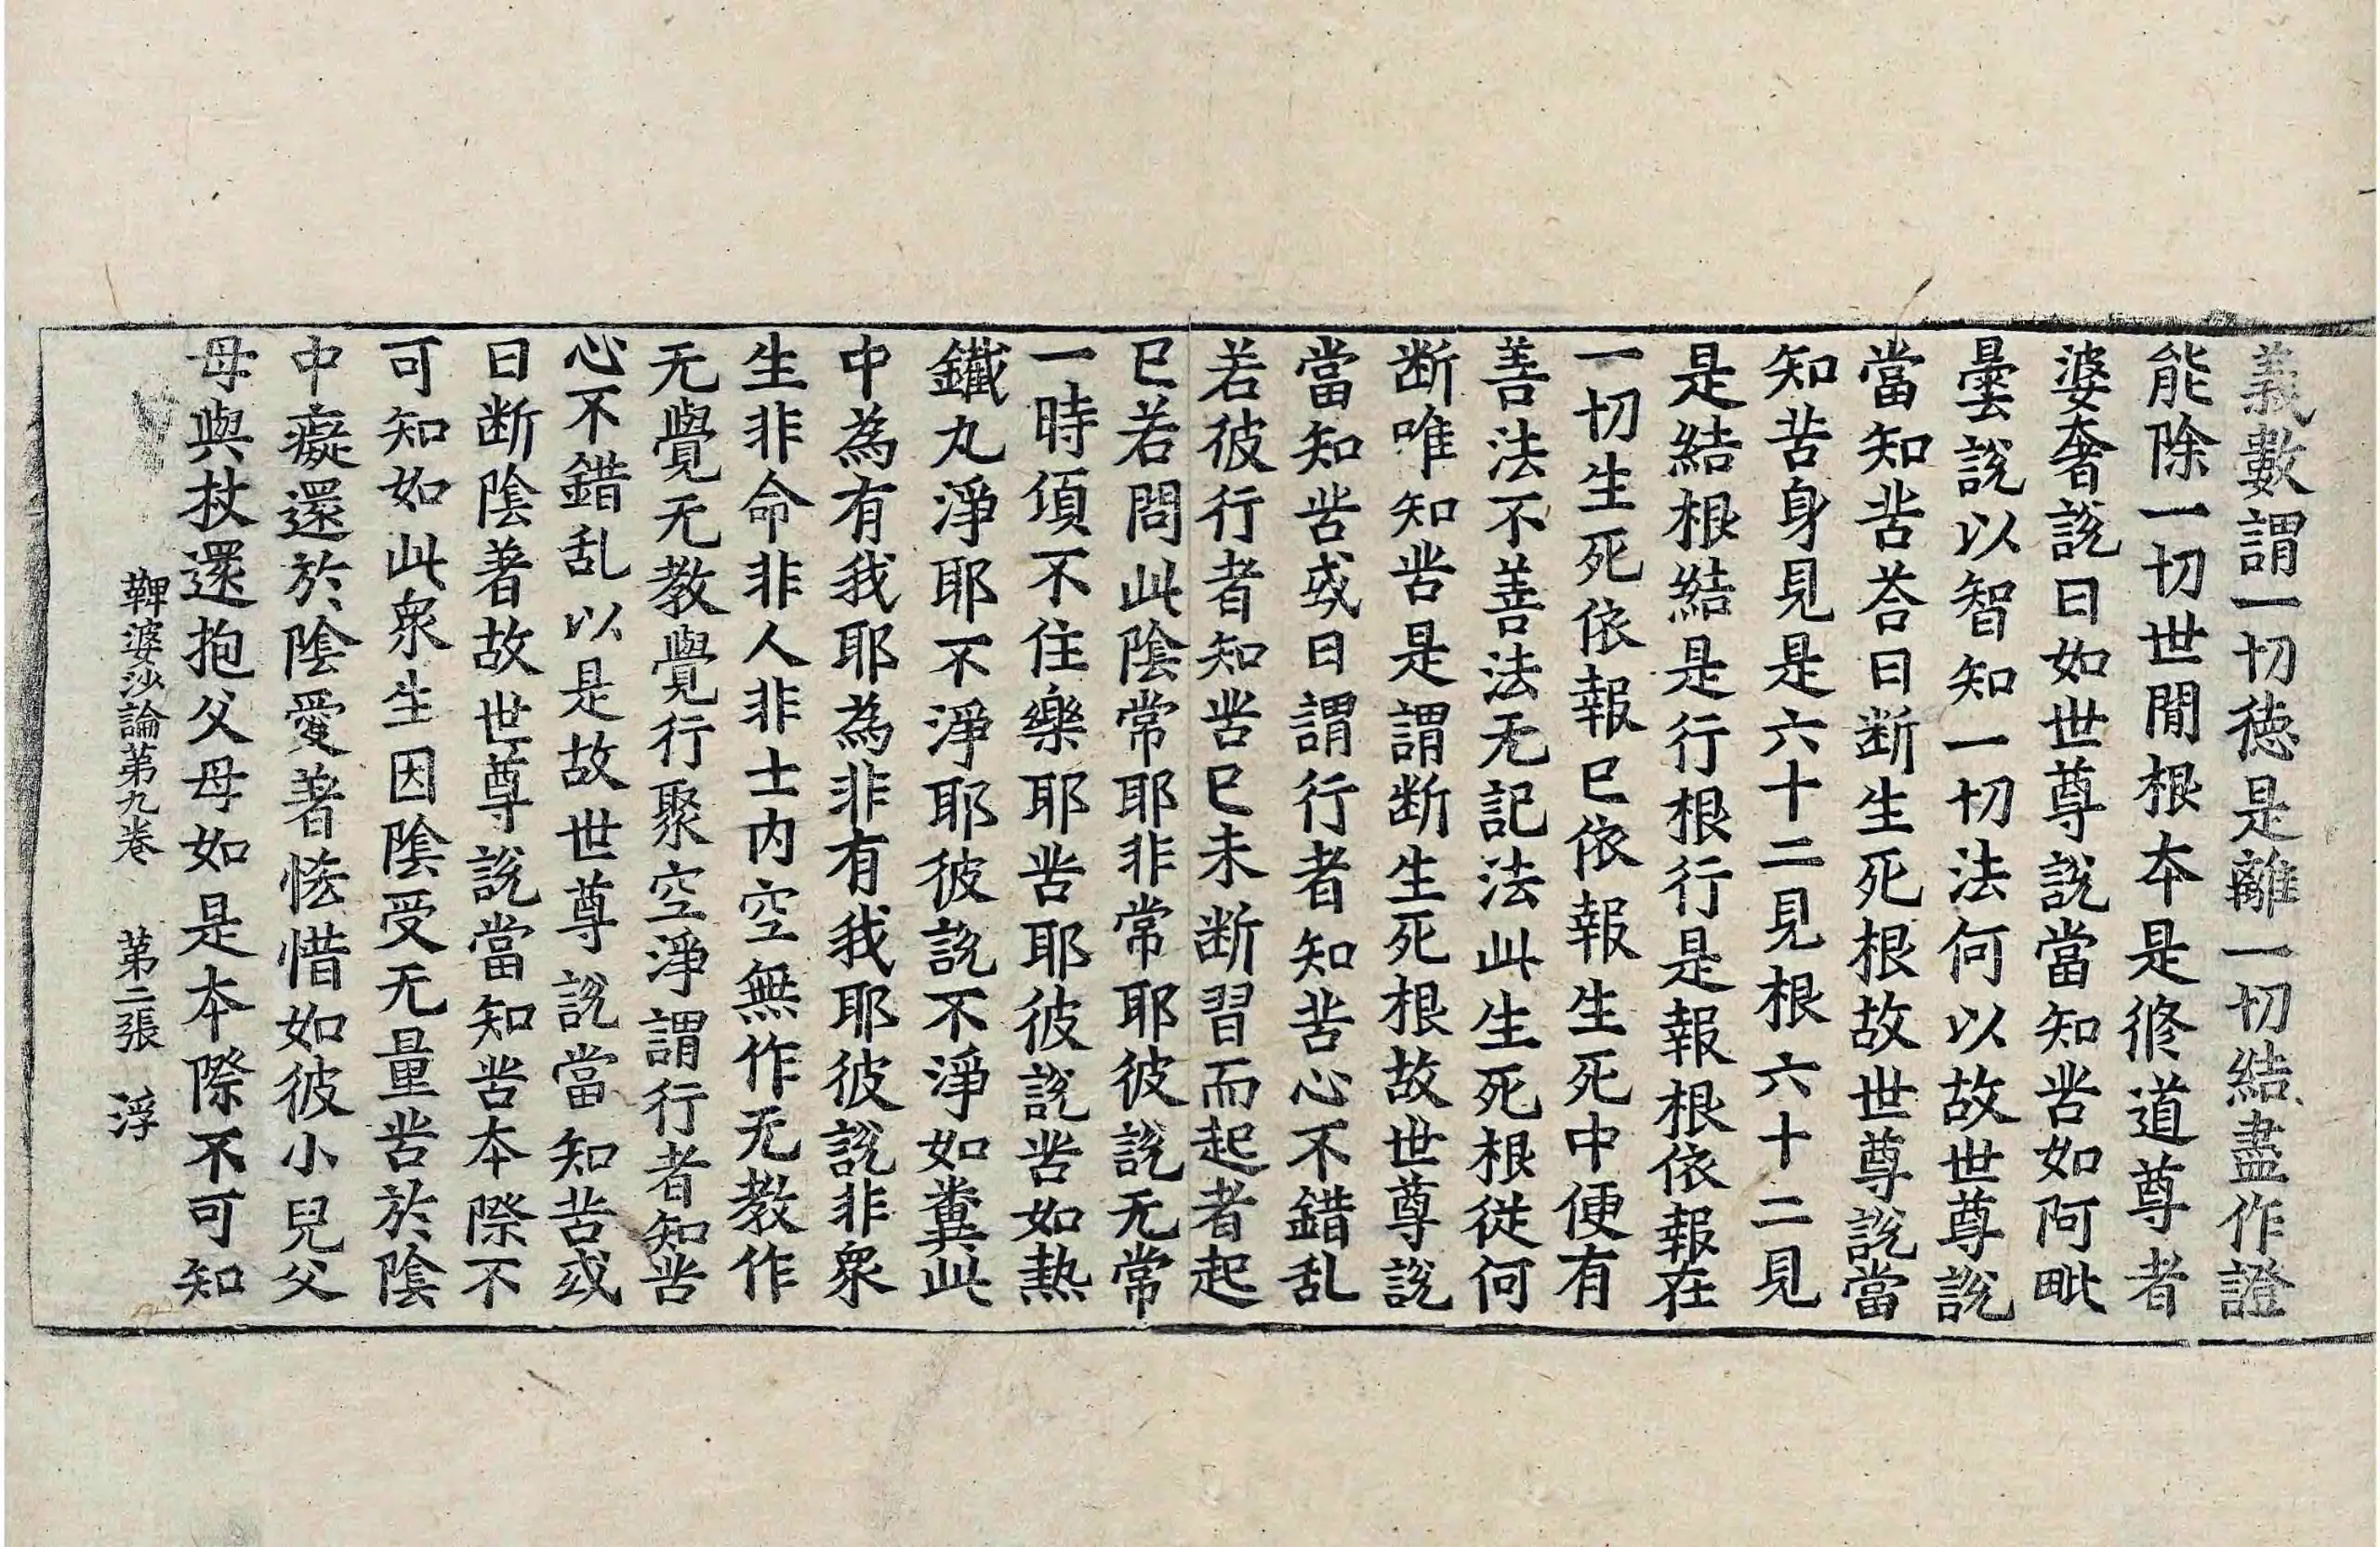 義數謂一切德是離一切結盡作證
能除一切世間根本是修道尊者
婆奢說曰如世尊說當知苦如阿毗
曇說以智知一切法何以故世尊說
當知苦荅曰断生死根故世尊說當
知苦身見是六十二見根六十二見
是結根結是行根行是報根依報在
一切生死依報已依報生死中便有
善法不善法无記法此生死根從何
断唯知苦是謂断生死根故世尊說
當知苦或曰謂行者知苦心不錯乱
若彼行者知苦已未断習而起者起
已若問此陰常耶非常耶彼說无常
一時湏不住樂耶苦耶彼說苦如熱
鐵丸淨耶不淨耶彼說不淨如糞此
中為有我耶為非有我耶彼說非衆
生非命非人非士内空無作无教作
无覺无教覺行聚空淨謂行者知苦
心不錯乱以是故世尊說當知苦或
曰断陰著故世尊說當知苦本際不
可知如此衆生因陰受无量苦於陰
中癡還於陰愛著恡惜如彼小兒父
母與杖還抱父母如是本際不可知
鞞婆沙論第九卷　第二張　浮